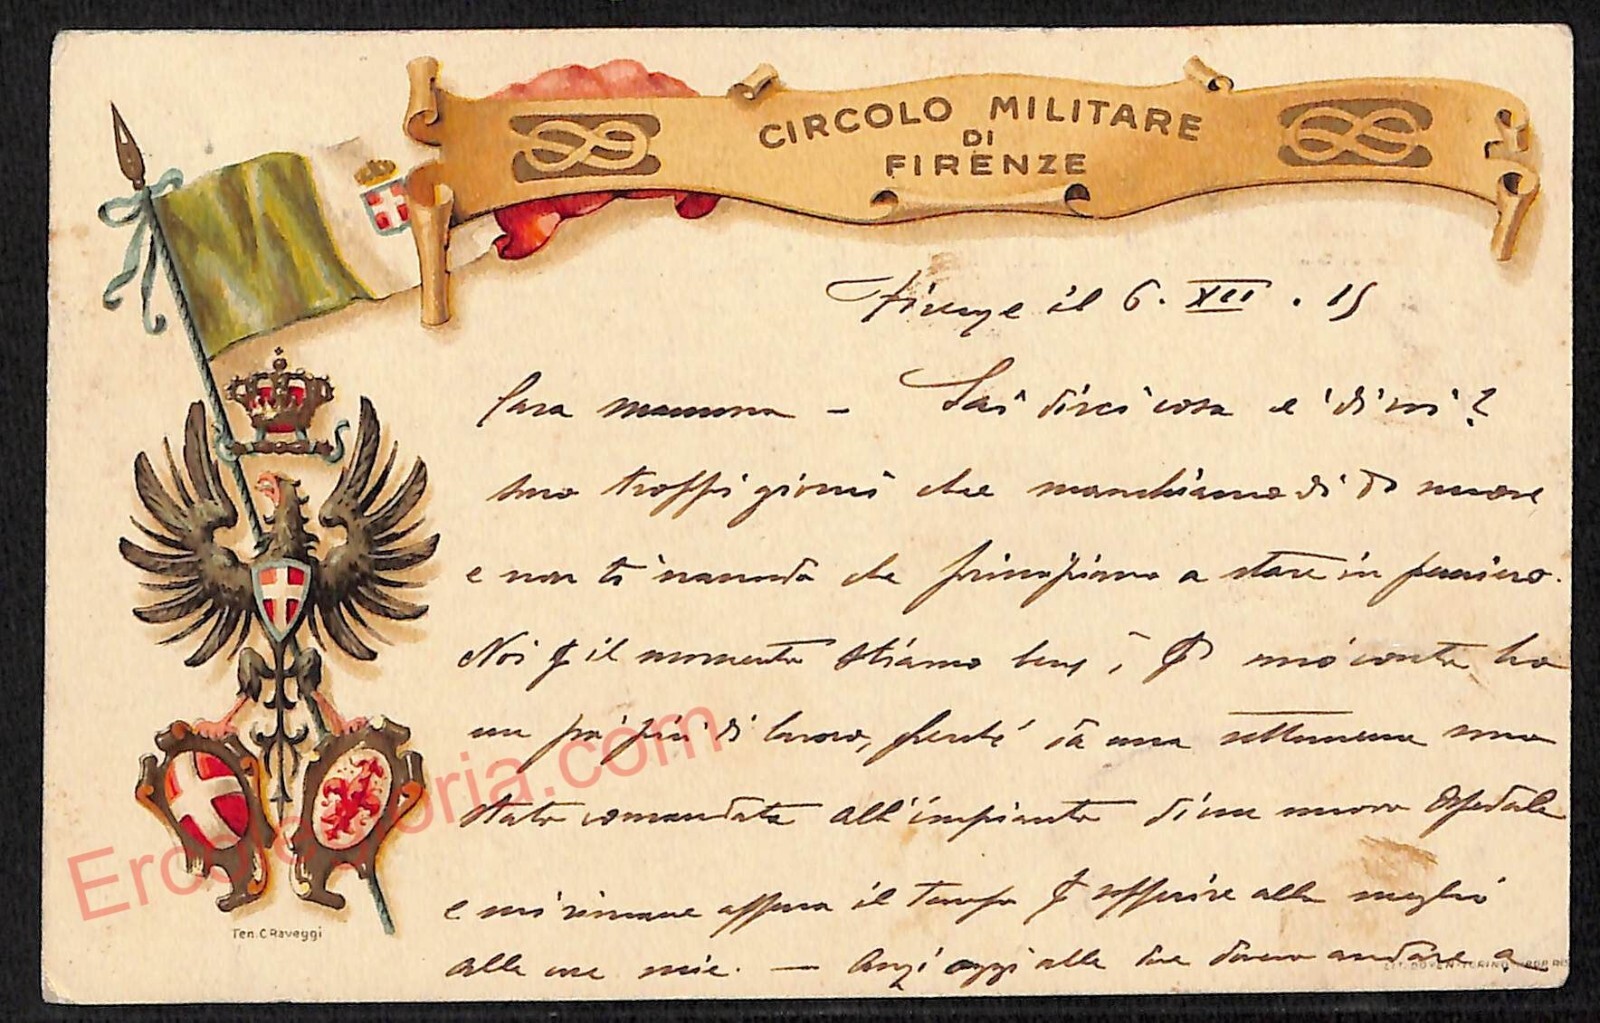 CIRCOLO MILITARE
DI
FIRENZE
Firenze il 6. XII. 15
Cara mamma – Sai dirci cosa è di voi?
sono troppi giorni che manchiamo di tue nuove
e non ti nascondo che principiamo a stare in pensiero.
Noi p il momento stiamo bene, p mio conto ho
un pò più di lavoro, perché da una settimana sono
stato comandato all'impianto di un nuovo Ospedale
e mi rimane appena il tempo p sopperire alla meglio
alle ore mie. – Anzi oggi alle due dovrò andare a
Ten. C Raveggi
LIT. DOYEN-TORINO
Ercolegloria.com